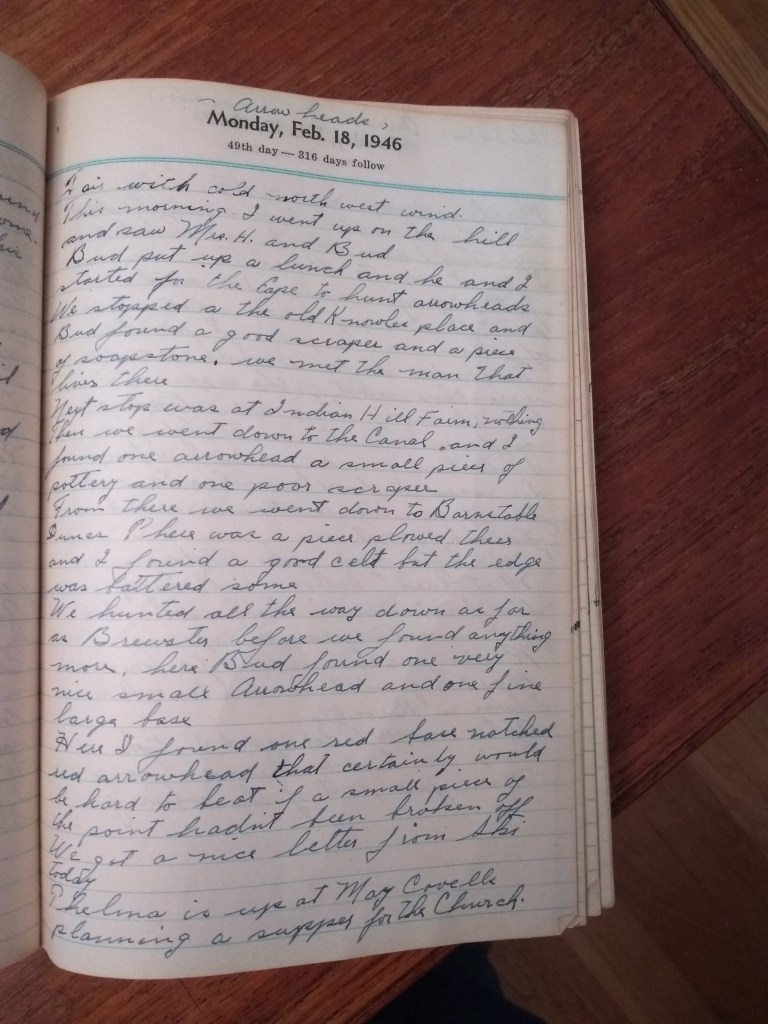 Arrow heads,
Monday, Feb. 18, 1946
49th day — 316 days follow
Fair with cold north west wind.
This morning I went up on the hill
and saw Mrs. H. and Bud
Bud put up a lunch and he and I
started for the Cape to hunt arrowheads
We stopped a the old Knowles place and
Bud found a good scraper and a piece
of soapstone. we met the man that
lives there
Next stop was at Indian Hill Farm, nothing
Then we went down to the Canal. and I
found one arrowhead a small piece of
pottery and one poor scraper
From there we went down to Barnstable
Dunes There was a piece plowed there
and I found a good celt but the edge
was battered some
We hunted all the way down as far
as Brewster before we found anything
more, here Bud found one very
nice small Arrowhead and one fine
large base
Here I found one red base notched
red arrowhead that certainly would
be hard to beat if a small piece of
the point hadn't been broken off
We got a nice letter from
today
Thelma is up at May Covells
planning a supper for the Church.